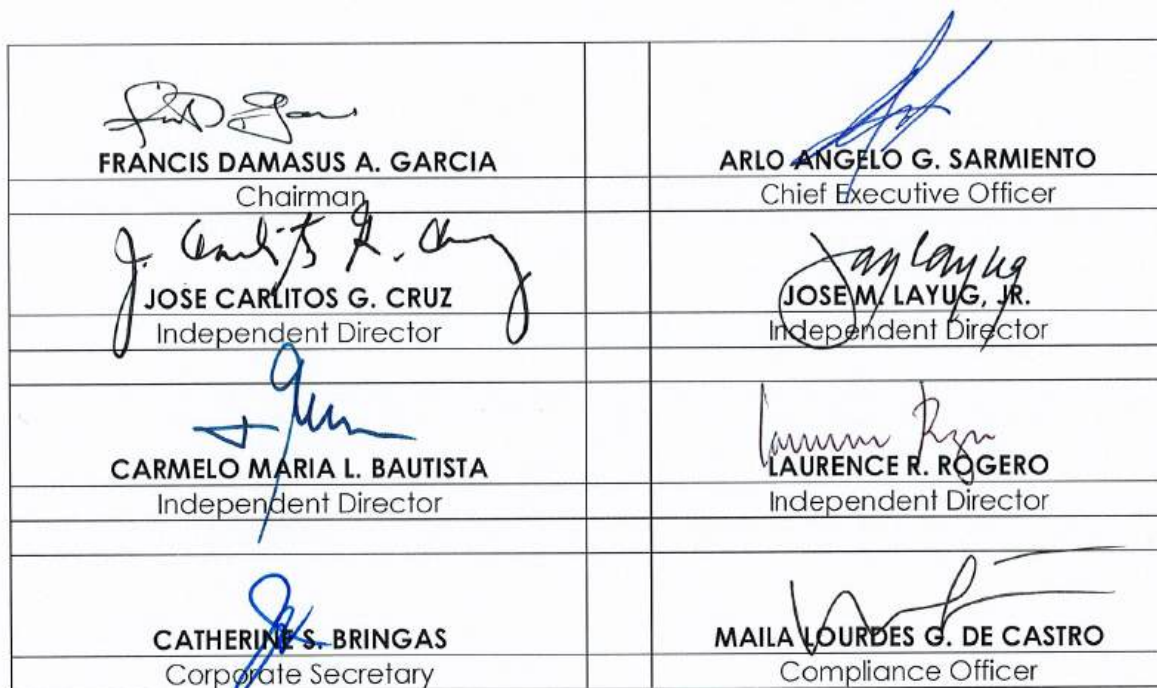 FRANCIS DAMASUS A. GARCIA
Chairman
ARLO ANGELO G. SARMIENTO
Chief Executive Officer
J. Carlitos G. Cruz
JOSE CARLITOS G. CRUZ
Independent Director
Jay Layug
JOSE M. LAYUG, JR.
Independent Director
CARMELO MARIA L. BAUTISTA
Independent Director
LAURENCE R. ROGERO
Independent Director
CATHERINE S. BRINGAS
Corporate Secretary
MAILA LOURDES G. DE CASTRO
Compliance Officer